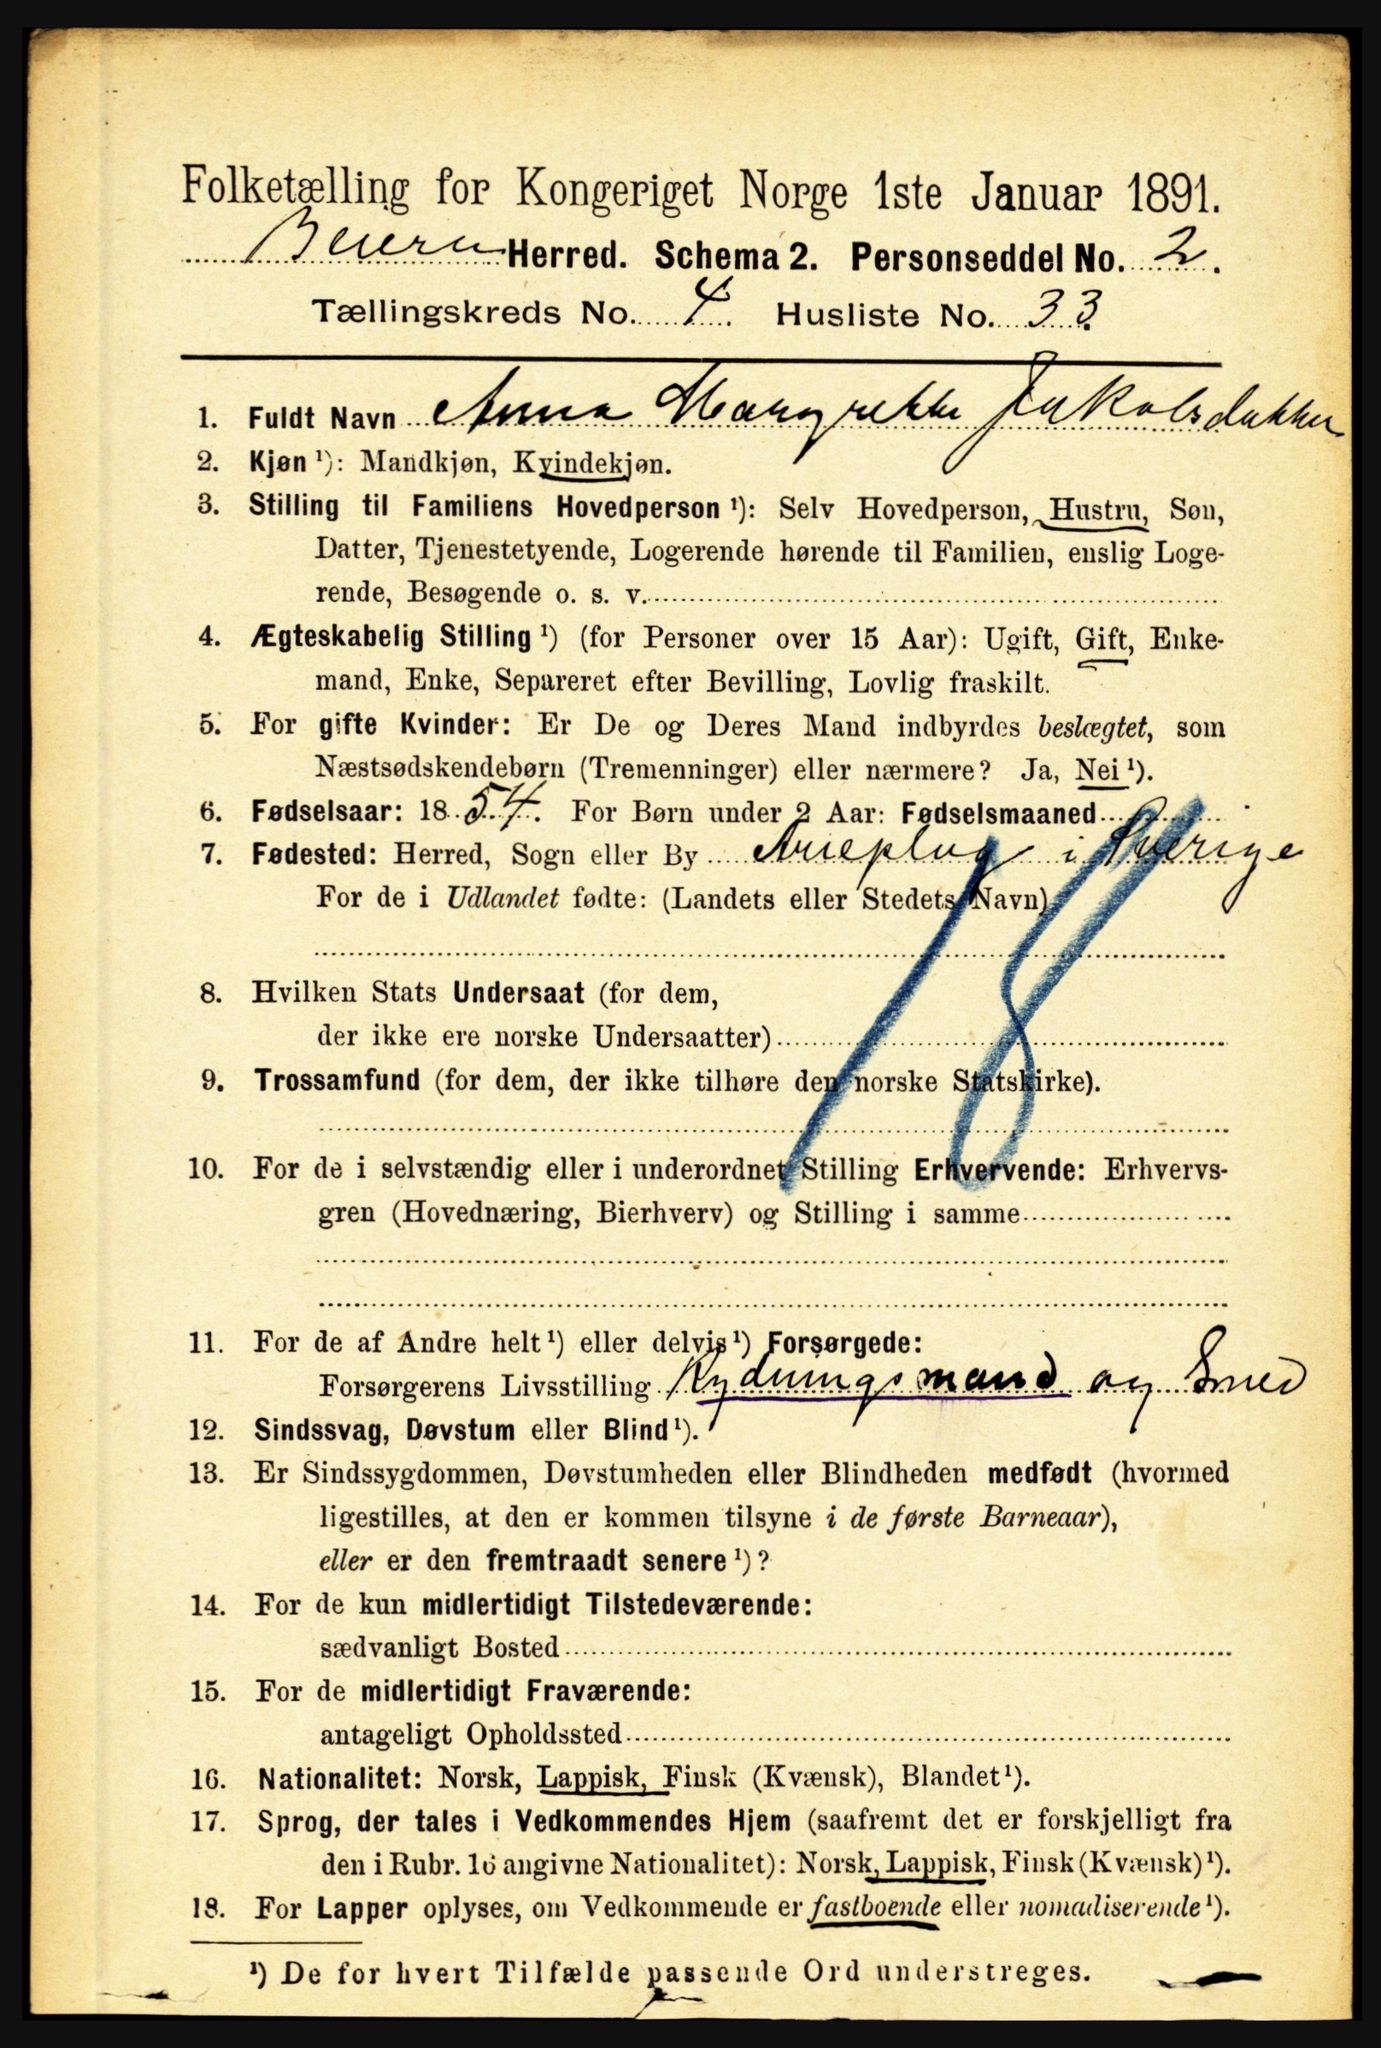 Folketælling for Kongeriget Norge 1ste Januar 1891.
Beiern Herred. Schema 2. Personseddel No. 2.
Tællingskreds No. 4. Husliste No. 33.
1. Fuldt Navn Anna Margrethe Jakobsdatter
2. Kjøn ¹): Mandkjøn, Kvindekjøn.
3. Stilling til Familiens Hovedperson ¹): Selv Hovedperson, Hustru, Søn,
Datter, Tjenestetyende, Logerende hørende til Familien, enslig Loge-
rende, Besøgende o. s. v.
4. Ægteskabelig Stilling ¹) (for Personer over 15 Aar): Ugift, Gift, Enke-
mand, Enke, Separeret efter Bevilling, Lovlig fraskilt.
5. For gifte Kvinder: Er De og Deres Mand indbyrdes beslægtet, som
Næstsødskendebørn (Tremenninger) eller nærmere? Ja, Nei ¹).
6. Fødselsaar: 1854. For Børn under 2 Aar: Fødselsmaaned
7. Fødested: Herred, Sogn eller By Arieplug i Sverige
For de i Udlandet fødte: (Landets eller Stedets Navn)
18
8. Hvilken Stats Undersaat (for dem,
der ikke ere norske Undersaatter)
9. Trossamfund (for dem, der ikke tilhøre den norske Statskirke).
10. For de i selvstændig eller i underordnet Stilling Erhvervende: Erhvervs-
gren (Hovednæring, Bierhverv) og Stilling i samme
11. For de af Andre helt ¹) eller delvis ¹) Forsørgede:
Forsørgerens Livsstilling Rydningsmand og Smed
12. Sindssvag, Døvstum eller Blind ¹).
13. Er Sindssygdommen, Døvstumheden eller Blindheden medfødt (hvormed
ligestilles, at den er kommen tilsyne i de første Barneaar),
eller er den fremtraadt senere ¹)?
14. For de kun midlertidigt Tilstedeværende:
sædvanligt Bosted
15. For de midlertidigt Fraværende:
antageligt Opholdssted
16. Nationalitet: Norsk, Lappisk, Finsk (Kvænsk), Blandet ¹).
17. Sprog, der tales i Vedkommendes Hjem (saafremt det er forskjelligt fra
den i Rubr. 16 angivne Nationalitet): Norsk, Lappisk, Finsk (Kvænsk) ¹).
18. For Lapper oplyses, om Vedkommende er fastboende eller nomadiserende ¹).
¹) De for hvert Tilfælde passende Ord understreges.